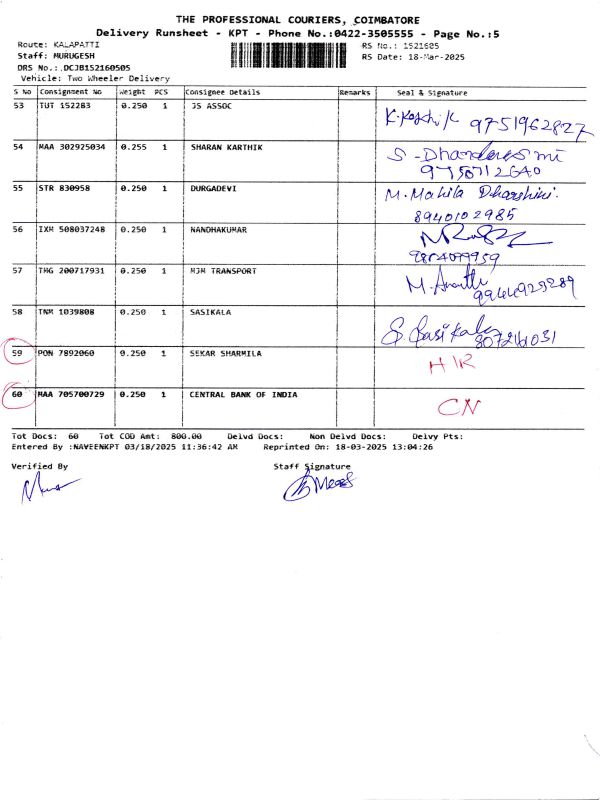 THE PROFESSIONAL COURIERS, COIMBATORE
Delivery Runsheet - KPT - Phone No.:0422-3505555 - Page No.:5
Route: KALAPATTI RS No.: 1521605
Staff: MURUGESH RS Date: 18-Mar-2025
DRS No.:.DCJB152160505
Vehicle: Two Wheeler Delivery
S No Consignment No Weight PCS Consignee Details Remarks Seal & Signature
53 TUT 152283 0.250 1 JS ASSOC
9751962827
54 MAA 302925034 0.255 1 SHARAN KARTHIK
55 STR 830958 0.250 1 DURGADEVI M. Mahila Dharshini.
8940102985
56 IXM 508037248 0.250 1 NANDHAKUMAR
57 TMG 200717931 0.250 1 MJM TRANSPORT
9944929289
58 TNM 1039808 0.250 1 SASIKALA S. Sasikala
59 PON 7892060 0.250 1 SEKAR SHARMILA
60 MAA 705700729 0.250 1 CENTRAL BANK OF INDIA
CN
Tot Docs: 60 Tot COD Amt: 800.00 Delvd Docs: Non Delvd Docs: Delvy Pts:
Entered By :NAVEENKPT 03/18/2025 11:36:42 AM Reprinted On: 18-03-2025 13:04:26
Verified By Staff Signature